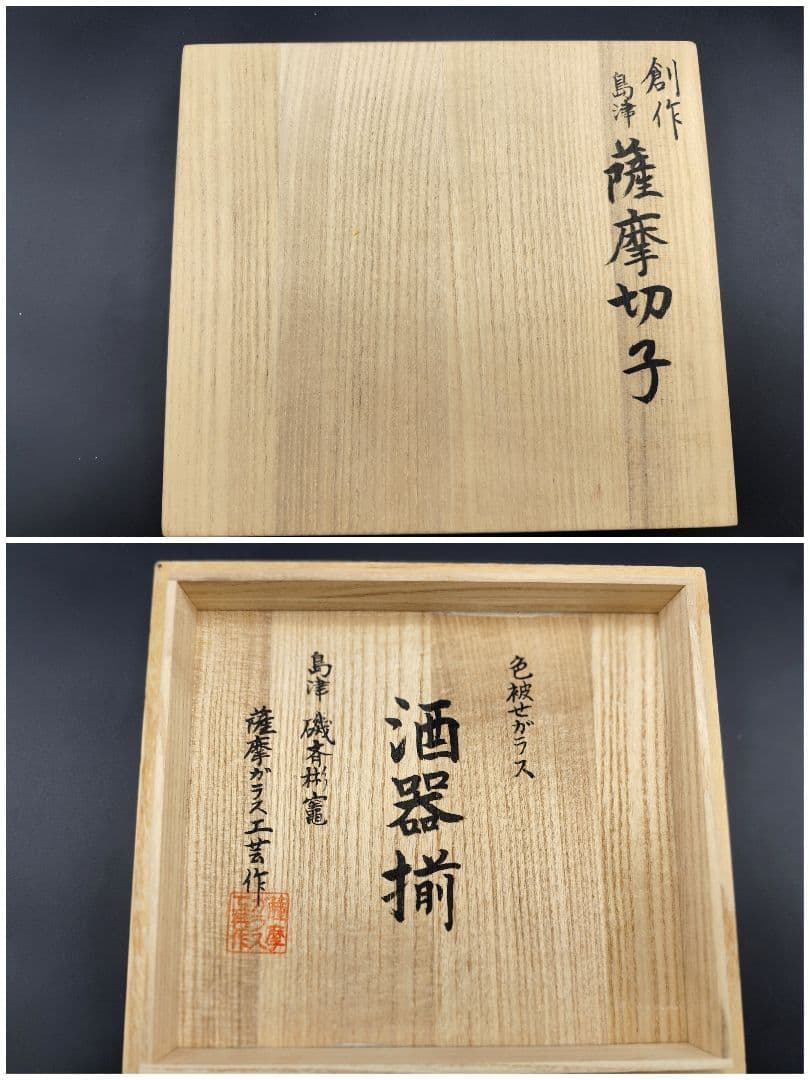 創作
島津
薩摩切子
色被せガラス
酒器揃
島津 磯斉彬竈
薩摩ガラス工芸作
薩摩
ガラス
工芸作